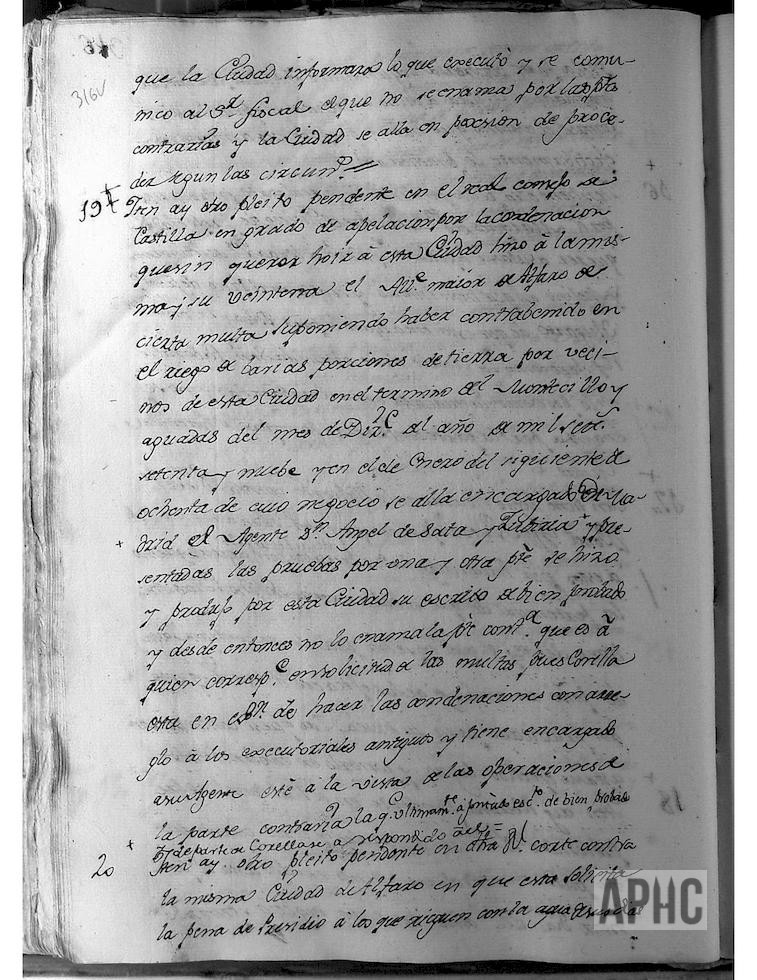 316V
que la Ciudad informara lo que executò y se comu-
nico al Sr. fiscal el que no se enama por las ptes
contrarias y la Ciudad se alla en posesion de proce-
der segun las circuns.
19 Iten ay otro pleito pendente en el real consejo de
Castilla en grado de apelacion por la condenacion
que sin querer hoir à esta Ciudad hizo à la mis-
ma y su Veinterna el Alle. maior de Alfaro de
cierta multa suponiendo haber contrabenido en
el riego de barias porciones de tierra por veci-
nos de esta Ciudad en el termino del Montecillo y
aguadas del mes de Dize. del año de mil setes.
setenta y nuebe y en el de Enero del siguiente de
ochenta de cuio negocio se alla encargado en Ma-
drid el Agente Dn. Angel de Sata y Zubiria y pre-
sentadas las pruebas por una y otra pte se hizo
y produjo por esta Ciudad su escrito de bien probado
y desde entonces no lo enama la pte conta. que es à
quien corresp.e en solicitud de las multas pues Corella
esta en de hacer las condenaciones con arre-
glo à los executoriales antiguos y tiene encargado
a su Agente estè à la vista de las operaciones de
la parte contraria la q. ultimamte. à puntado escto. de bien probado
y de parte de Corella se a respondido a el =
20 Iten ay otro pleito pendente en dha Rl. corte contra
la misma Ciudad de Alfaro en que esta solicita
la pena de Presidio à los que rieguen con la agua
APHC